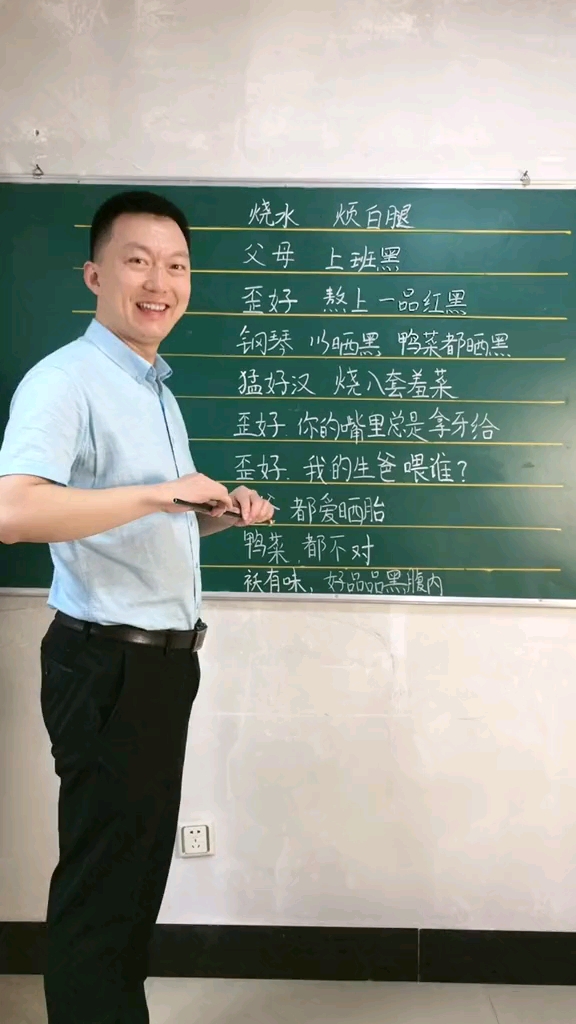 烧水 烦白腿
父母 上班黑
歪好 熬上一品红黑
钢琴 以晒黑 鸭菜都晒黑
猛好汉 烧八套羞菜
歪好 你的嘴里总是拿牙给
歪好.我的生爸喂谁?
都爱晒胎
鸭菜.都不对
袄有味,好品品黑腹内